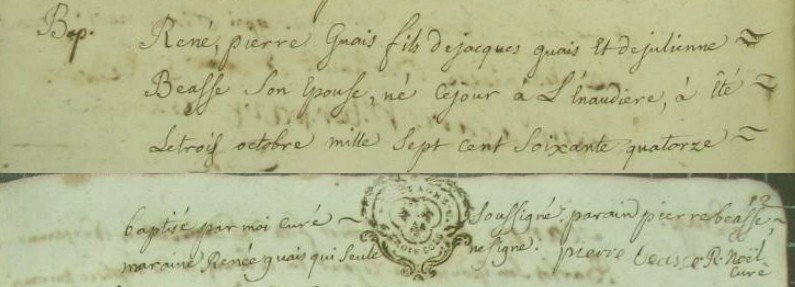 Bap. René, pierre Guais fils de jacques guais Et de julienne
Beasse Son Epouse, né Cejour à L'Enaudiere, à Eté
Letrois octobre mille Sept cent Soixante quatorze
12
baptisé par moi Curé Soussigné. parain pierre beasse,
maraine Renée guais qui Seule ne signe. pierre beasse R. Noël
Curé